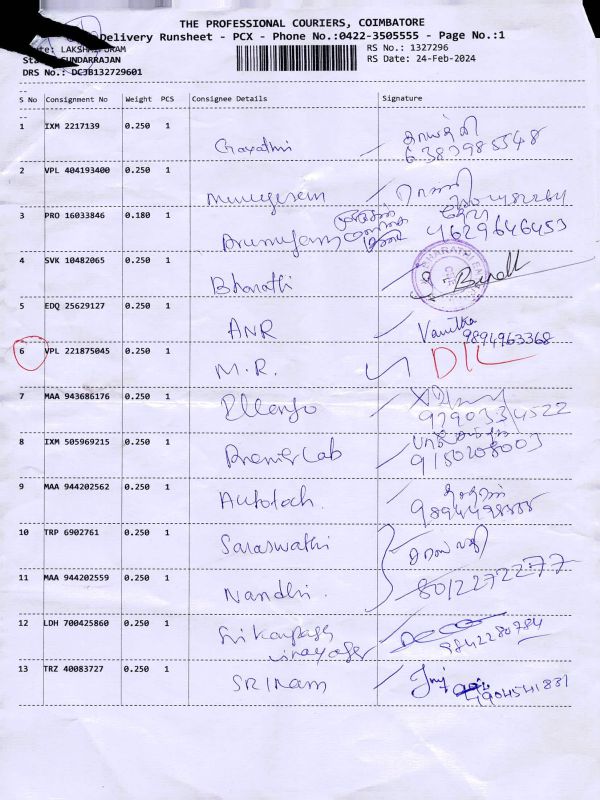 THE PROFESSIONAL COURIERS, COIMBATORE
Delivery Runsheet - PCX - Phone No.:0422-3505555 - Page No.:1
LAKSHMIPURAM
RS No.: 1327296
SUNDARRAJAN
RS Date: 24-Feb-2024
DRS No.: DCJB132729601
S No Consignment No Weight PCS Consignee Details Signature
1 IXM 2217139 0.250 1 Gayathri காயத்ரி
6383985348
2 VPL 404193400 0.250 1 Murugesan
3 PRO 16033846 0.180 1 Arumugam 4629646453
4 SVK 10482065 0.250 1 Bharathi
5 EDQ 25629127 0.250 1 ANR Vanitha
9894963368
6 VPL 221875045 0.250 1 M.R. D/L
7 MAA 943686176 0.250 1
9790334522
8 IXM 505969215 0.250 1 Premier Lab
9150208003
9 MAA 944202562 0.250 1 Autotech.
10 TRP 6902761 0.250 1 Saraswathi
11 MAA 944202559 0.250 1 Nandhi. 8012272277
12 LDH 700425860 0.250 1 Sri
vinayaga 9842280784
13 TRZ 40083727 0.250 1 SRIRAM